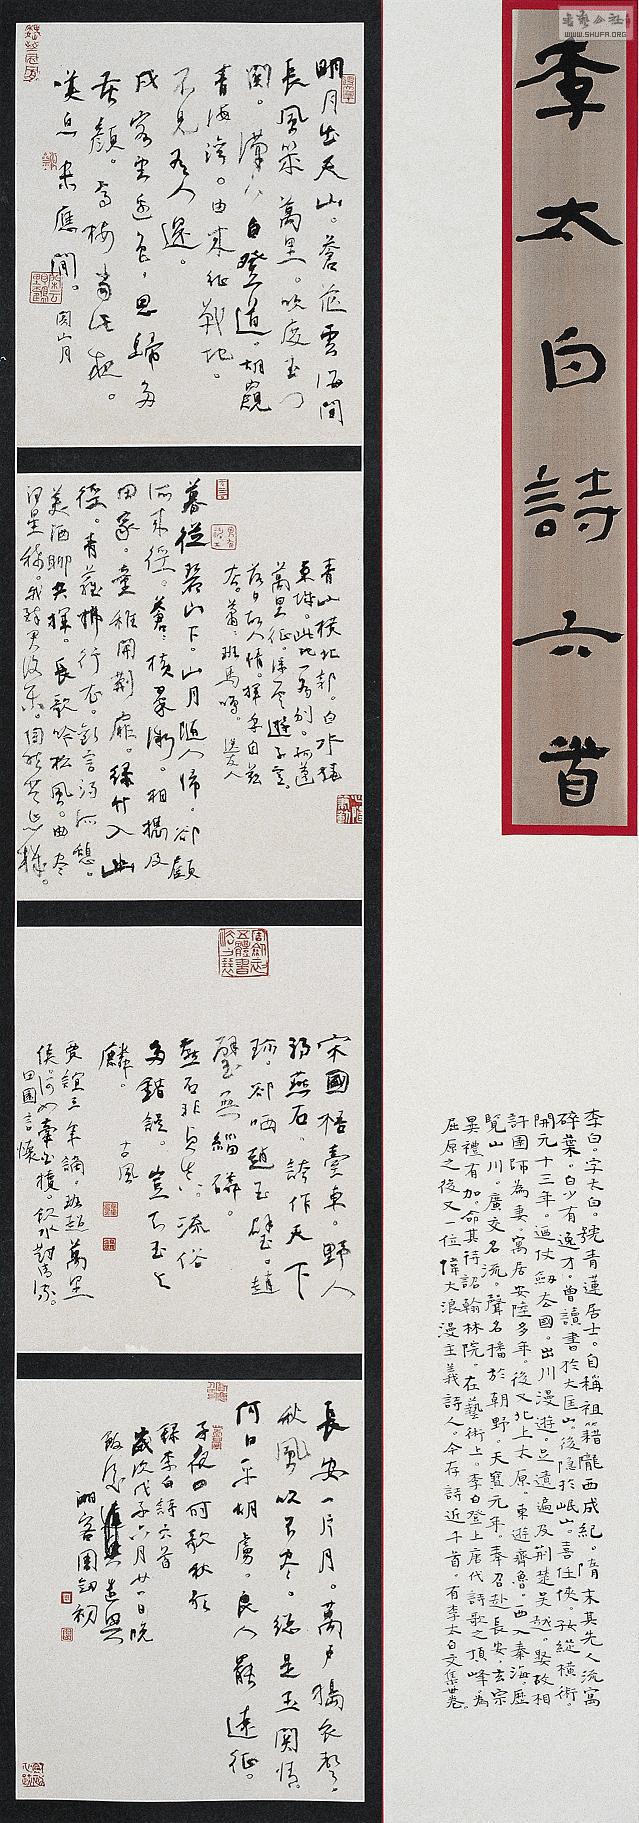 書藝公社
WWW.SHUFA.ORG
李太白詩六首
李白。字太白。號青蓮居士。自稱祖籍隴西成紀。隋末其先人流寓
碎葉。白少有逸才。曾讀書於大匡山。後隱於岷山。喜任俠。好縱橫術。
開元十三年。迺仗劍去國。出川漫遊。足遺遍及荊楚吳越。娶故相
許圉師為妻。寓居安陸多年。後又北上太原。東遊齊魯。西入秦海。歷
覽山川。廣交名流。聲名播於朝野。天寶元年。奉召赴長安。玄宗
異禮有加。命其待詔翰林院。在藝術上。李白登上唐代詩歌之頂峰。為
屈原之後又一位偉大浪漫主義詩人。今存詩近千首。有李太白文集卅卷。
明月出天山。蒼茫雲海間
長風幾萬里。吹度玉門
關。漢下白登道。胡窺
青海灣。由來征戰地。
不見有人還。
戍客望邊色。思歸多
苦顏。高樓當此夜。
嘆息未應閒。關山月
青山橫北郭。白水繞
東城。此地一為別。孤蓬
萬里征。浮雲遊子意。
落日故人情。揮手自茲
去。蕭蕭班馬鳴。送友人
暮從碧山下。山月隨人歸。卻顧
所來徑。蒼蒼橫翠微。相攜及
田家。童稚開荊扉。綠竹入幽
徑。青蘿拂行衣。歡言得所憩。
美酒聊共揮。長歌吟松風。曲盡
河星稀。我醉君復樂。陶然共忘機。
宋國梧臺東。野人
得燕石。誇作天下
珍。卻哂趙王璧。趙
璧無緇磷。
燕石非貞真。流俗
多錯誤。豈知玉與
古風
賈誼三年謫。班超萬里
侯。何如牽白犢。飲水對清流。
田園言懷
長安一片月。萬戶擣衣聲。
秋風吹不盡。總是玉關情。
何日平胡虜。良人罷遠征。
子夜四時歌秋歌
錄李白詩六首
歲次戊子六月廿一日晚
湘客周劍初